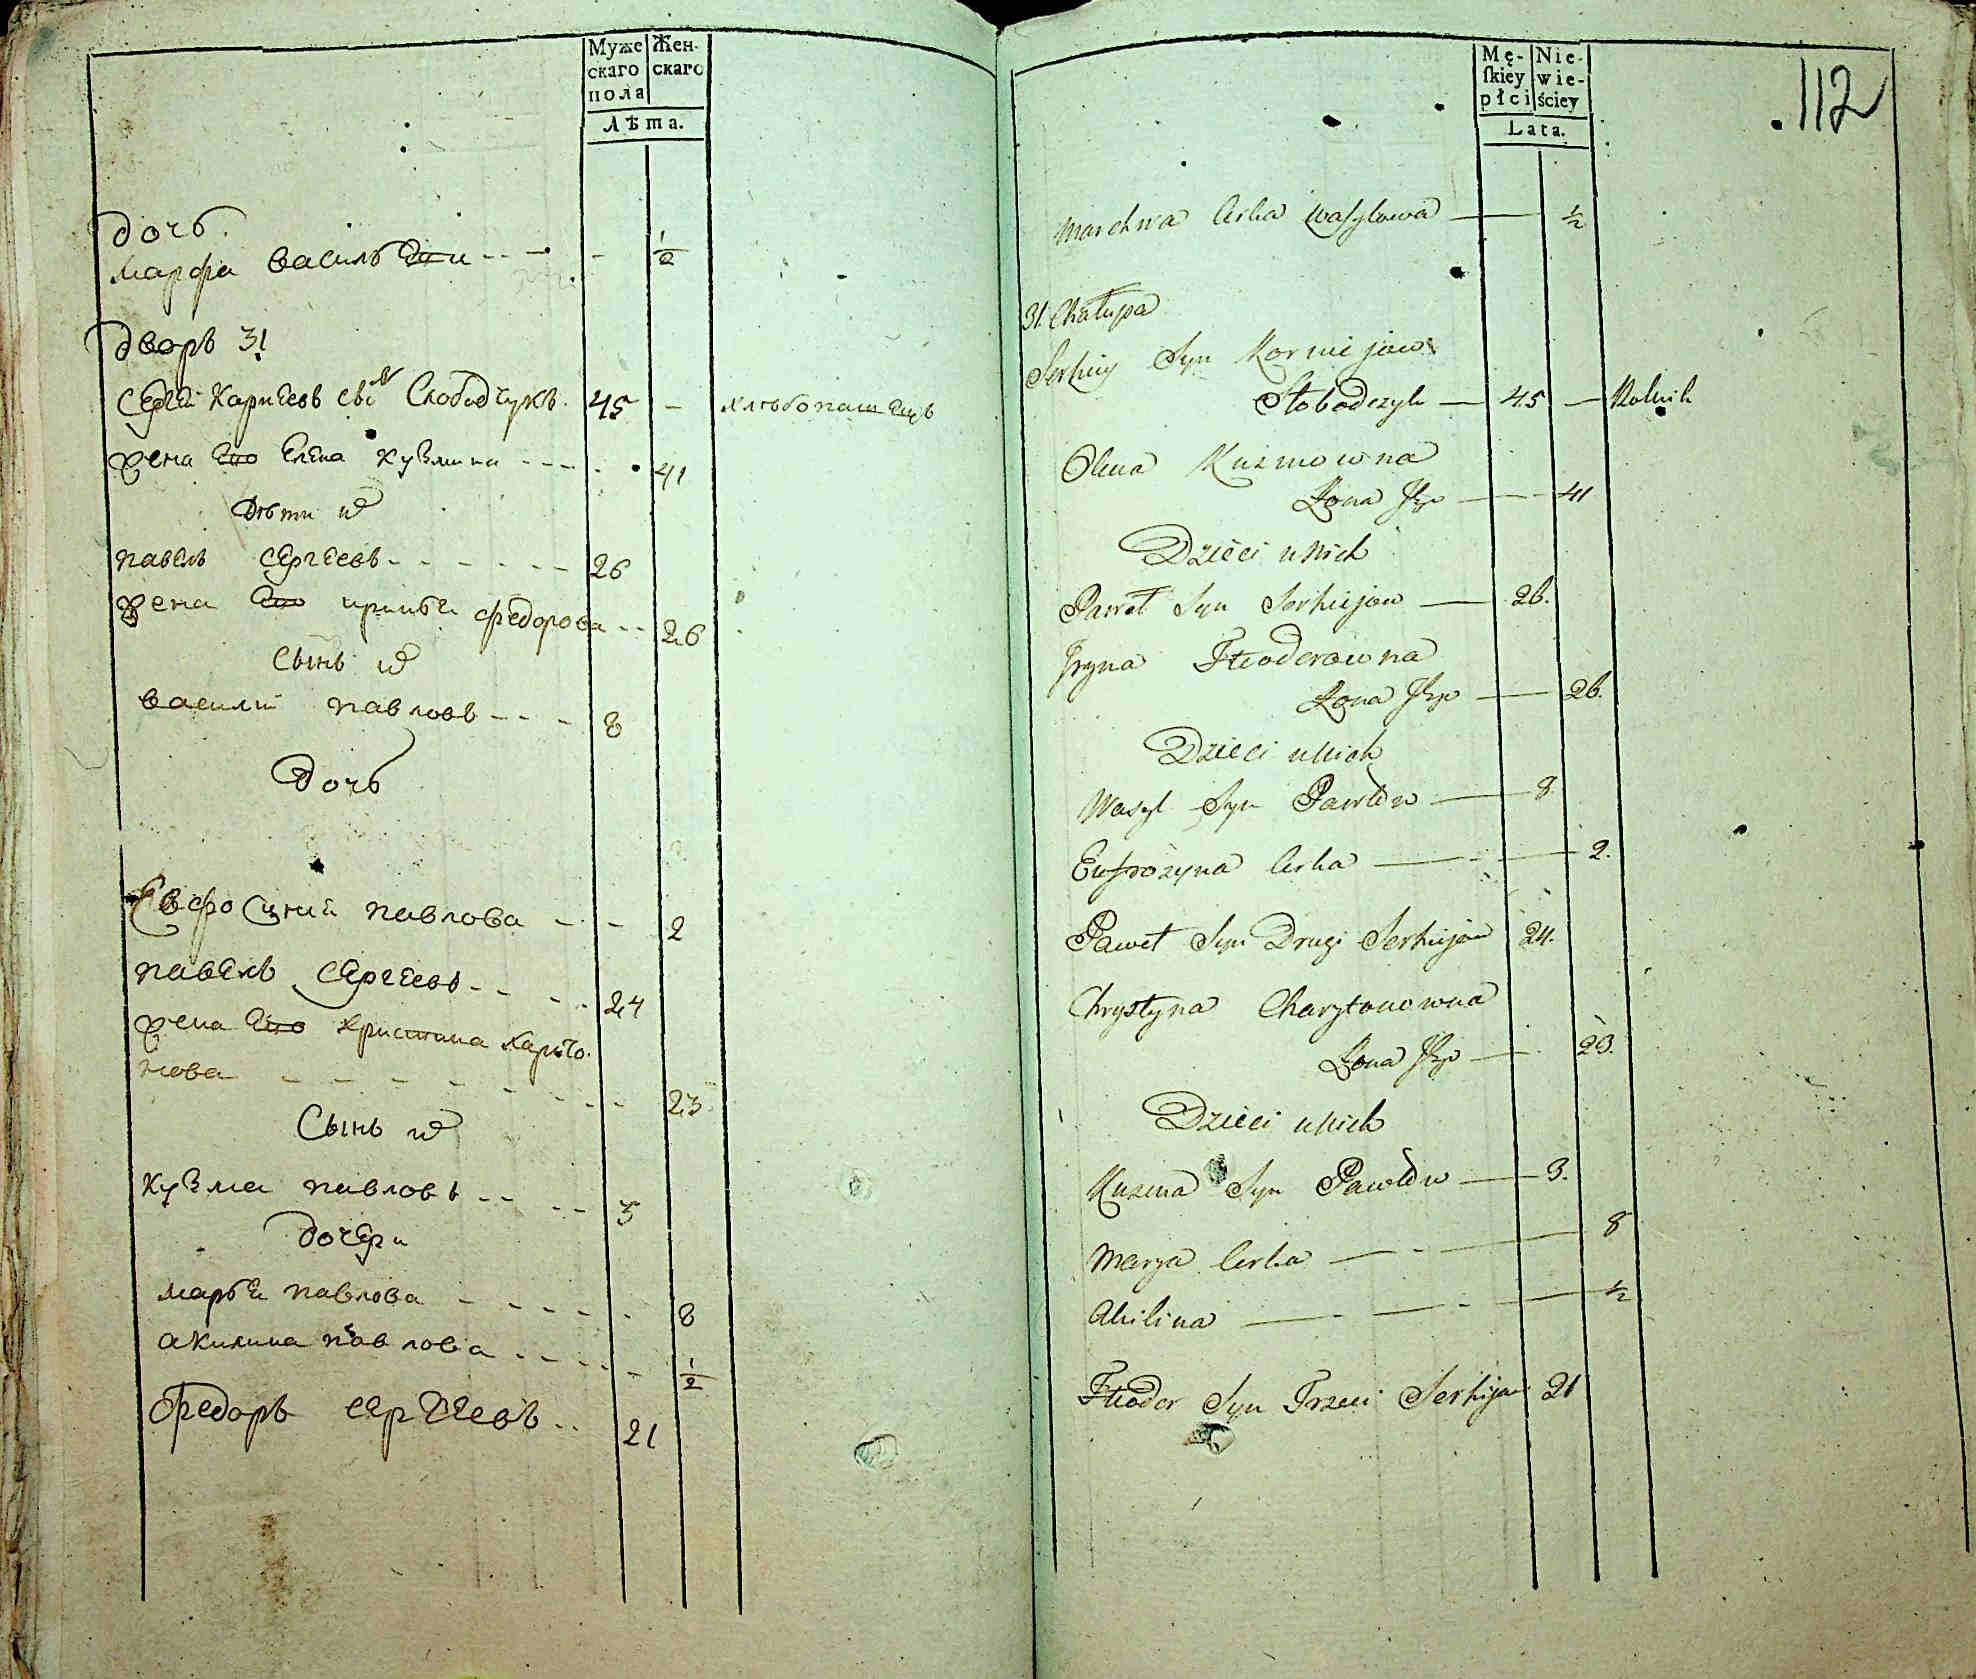 Муже Жен-
скаго скаго
пола
Лѣта.
дочь.
марфа васильева - - - - 1/2
дворъ 31
Сергей Карнеевъ снъ Слободчукъ. 45 - хлѣбопашецъ
жена его Елена кузмина - - - - 41
Дѣти их
павелъ сергеевъ - - - - - - 26
жена его ирина федорова - - 26
Сынъ их
василий павловъ - - - 8
Дочь
Евфросиния павлова - - 2
павелъ сергеевъ - - - - 24
жена его христина харито-
нова - - - - - - - - 23
Сынъ их
кузма павловъ - - - - 3
дочери
марья павлова - - - - - 8
акилина павлова - - - - - 1/2
Федоръ сергеевъ - - 21
Mę- Nie-
skiey wie-
płci ściey
Lata.
112
Marchwa Corka Wasylowa — 1/2
31. Chałupa
Serhiy Syn Korniejow
Słobodczyk — 45 — Rolnik
Olena Kuzmowna
Żona Jego — 41
Dzieci u Nich
Paweł Syn Serhiejow — 26.
Iryna Fteoderowna
Żona Jego — 26.
Dzieci u Nich
Wasyl Syn Pawłow — 8
Eufrozyna Corka — 2.
Paweł Syn Drugi Serhiejow 24.
Chrystyna Charytonowna
Żona Jego — 23.
Dzieci u Nich
Kuzma Syn Pawłow — 3.
Marya Corka — 8
Akilina — 1/2
Fteodor Syn Trzeci Serhijow 21